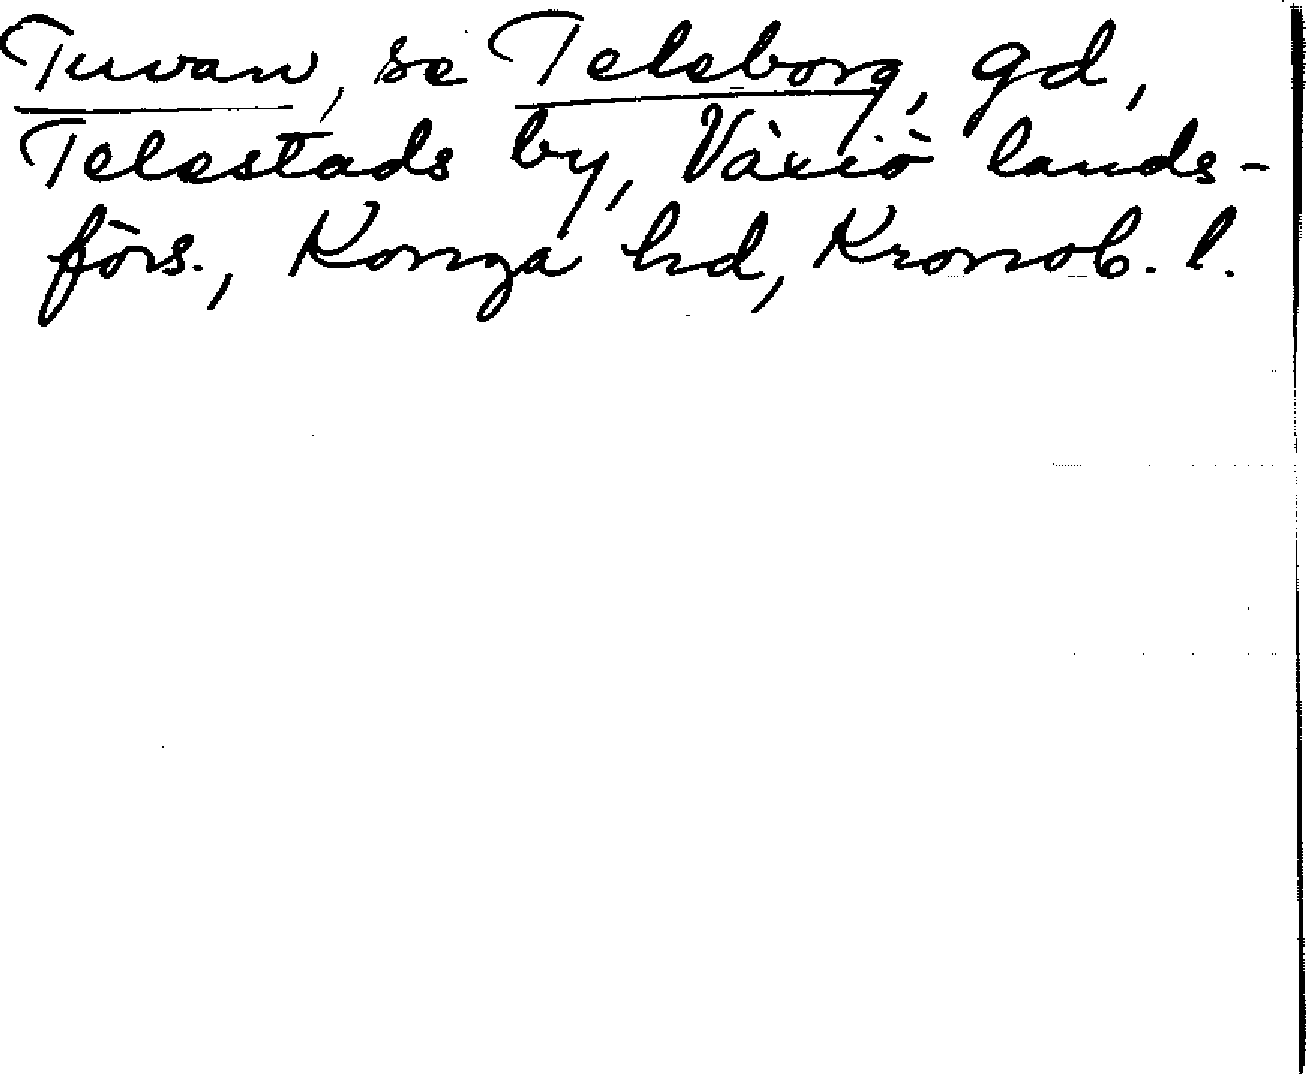 Tuvan, se Teleborg, gd,
Telestads by, Växiö lands-
förs., Konga hd, Kronob. l.